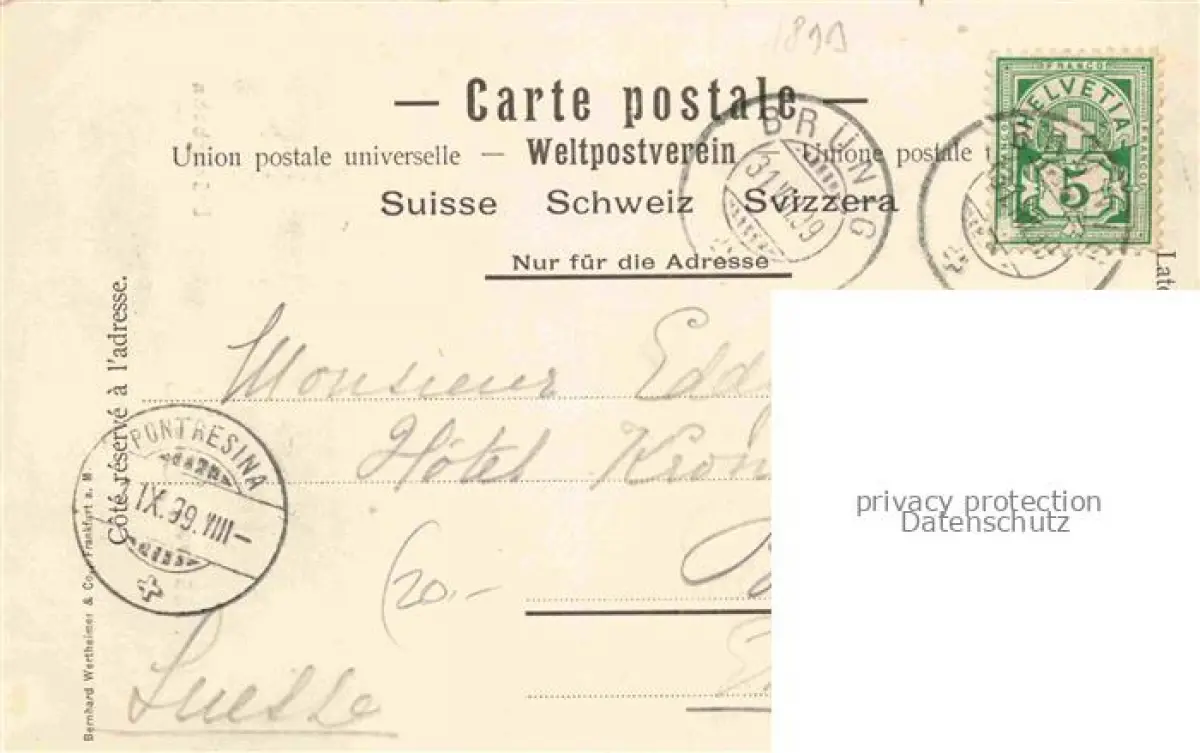 1899
— Carte postale —
Union postale universelle — Weltpostverein — Unione postale
Suisse Schweiz Svizzera
Nur für die Adresse
BRÜNIG
31.VIII.99
FRANCO
HELVETIA
5
Côté réservé à l'adresse.
Lato
Monsieur Edd
Hôtel Kron
PONTRESINA
IX.99.VIII—
(20.-
Suisse
Bernhard Wertheimer & Co., Frankfurt a. M.
privacy protection
Datenschutz